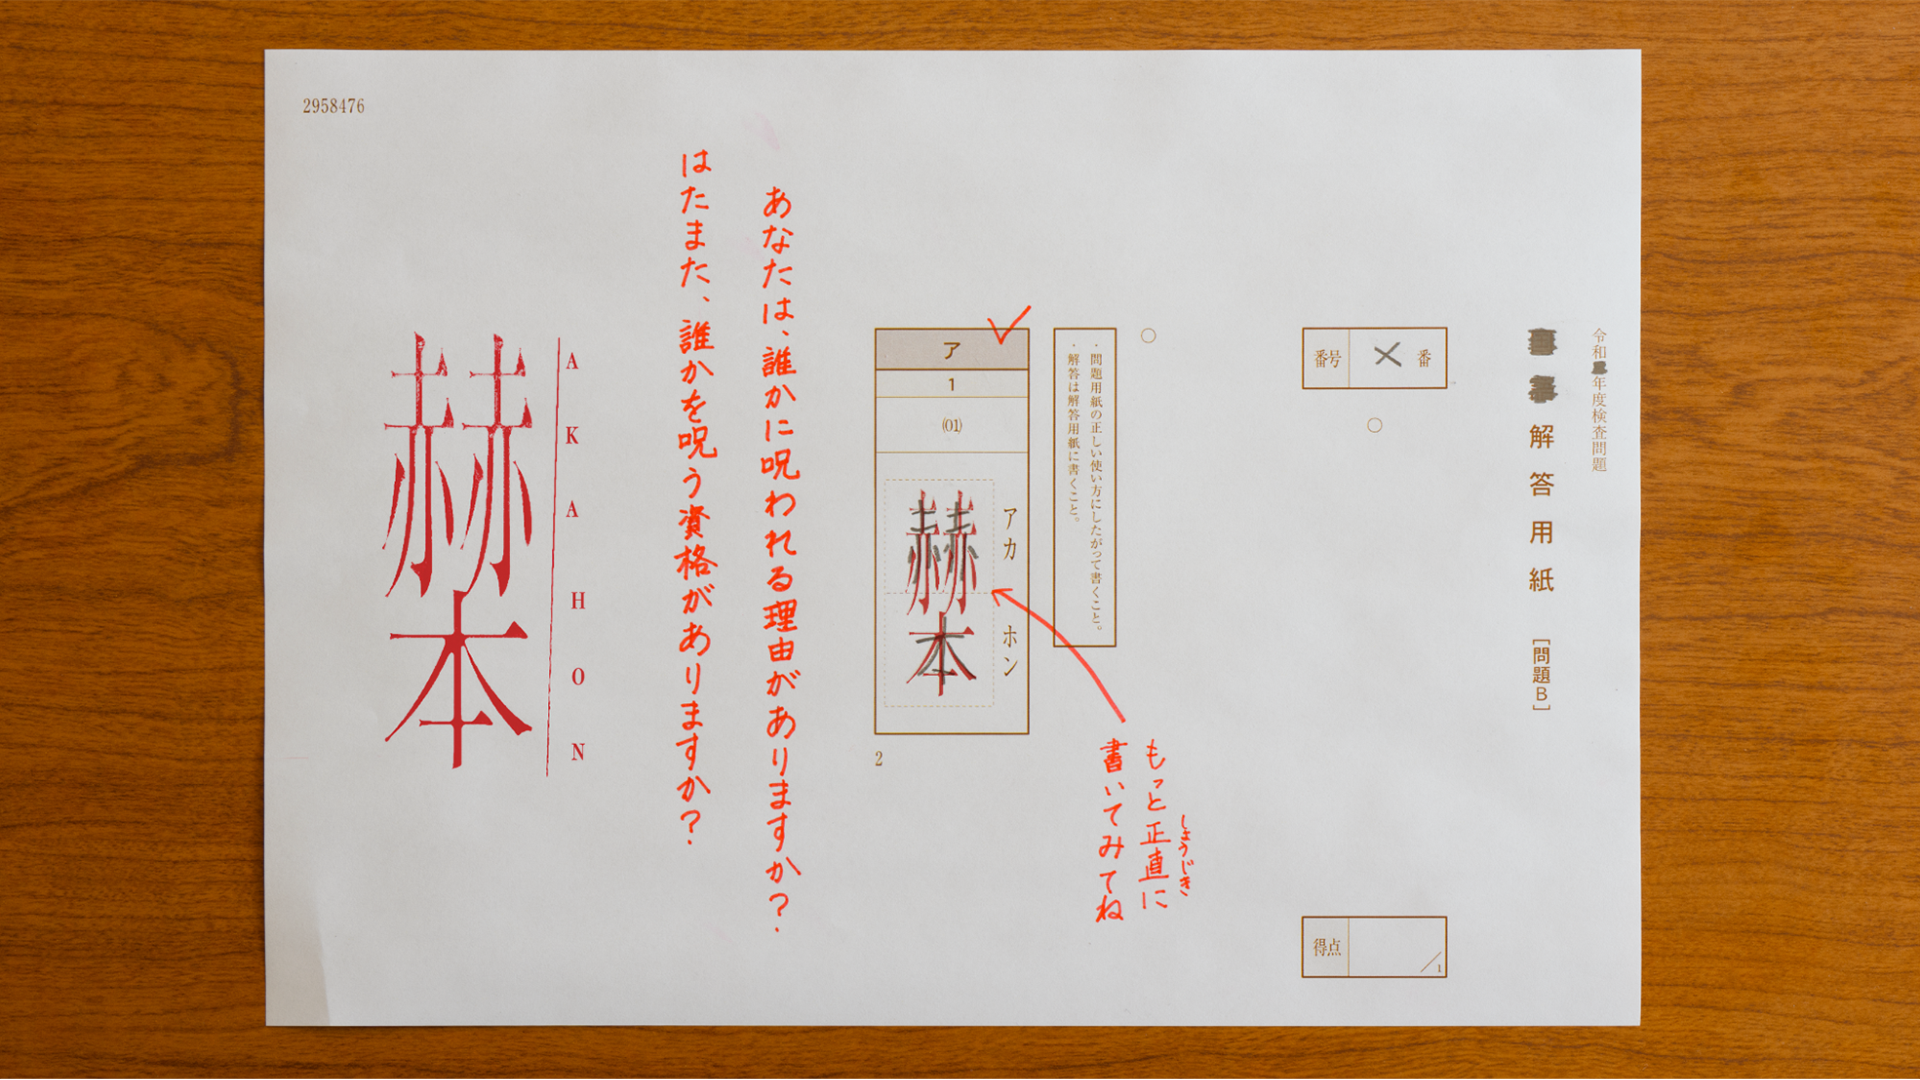 令和年度検査問題
解答用紙 [問題B]
番号 × 番
得点 /1
・問題用紙の正しい使い方にしたがって書くこと。
・解答は解答用紙に書くこと。
ア
1
(01)
アカ ホン
赫本
2
もっと正直に
しょうじき
書いてみてね
あなたは、誰かに呪われる理由がありますか?
はたまた、誰かを呪う資格がありますか?
AKAHON
赫本
2958476